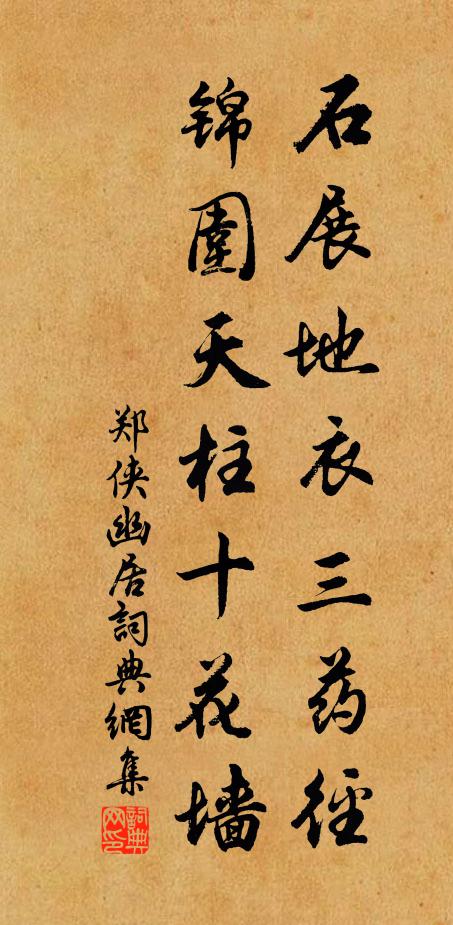 石展地衣三药径
锦圍天柱十花墙
郑侠幽居詞典網集
詞典网印